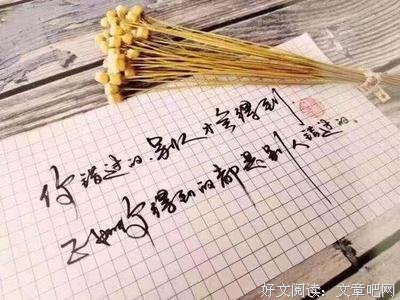 你错过的,别人才会得到;
正如你得到的都是别人错过的。
好文阅读:文章吧网